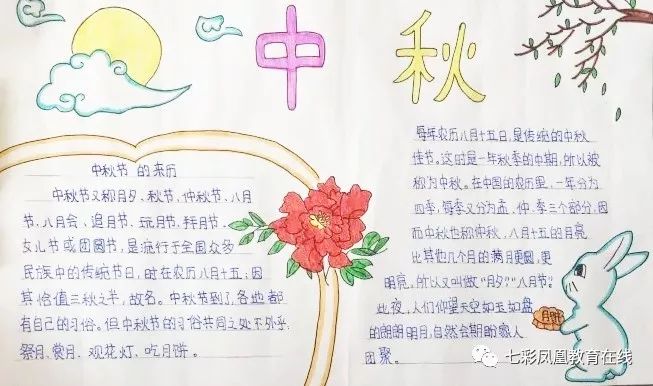 中秋
中秋节 的来历
中秋节又称月夕、秋节、仲秋节、八月
节、八月会、追月节、玩月节、拜月节、
女儿节或团圆节,是流行于全国众多
民族中的传统节日,时在农历八月十五;因
其恰值三秋之半,故名。中秋节到了,各地都
有自己的习俗。但中秋节的习俗共同之处不外乎
祭月、赏月、观花灯、吃月饼。
每年农历八月十五日,是传统的中秋
佳节。这时是一年秋季的中期,所以被
称为中秋。在中国的农历里,一年分为
四季,每季又分为孟、仲、季三个部分,因
而中秋也称仲秋。八月十五的月亮
比其他几个月的满月更圆,更
明亮,所以又叫做"月夕","八月节"。
此夜,人们仰望天空如玉如盘
的朗朗明月,自然会期盼家人
团聚。
月饼
七彩凤凰教育在线